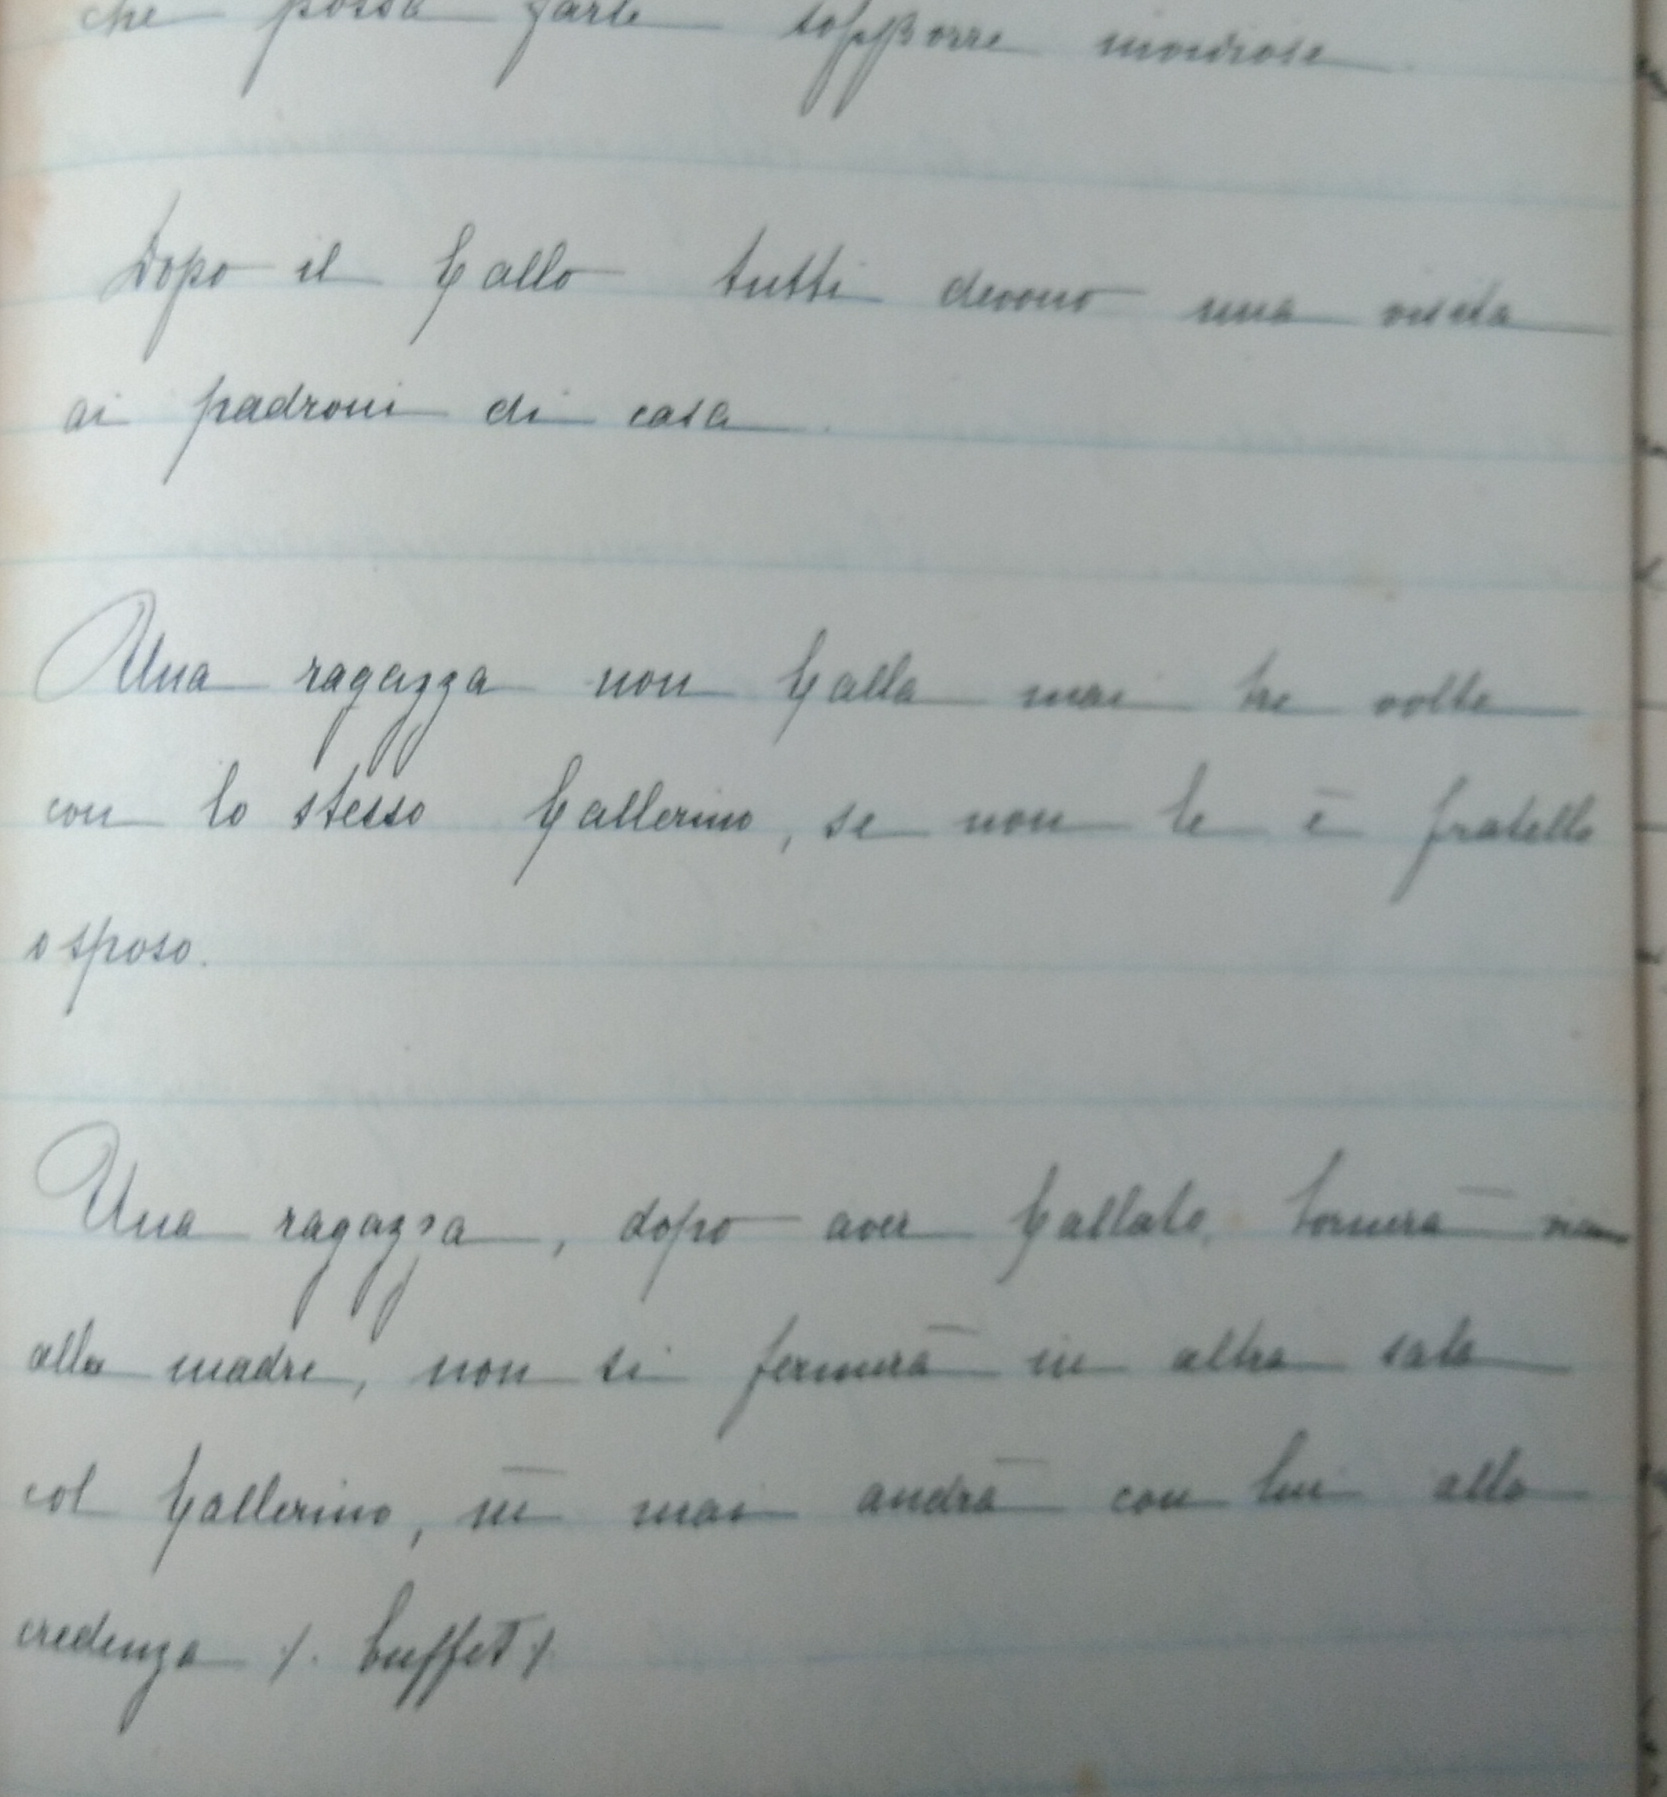 che possa farle supporre
Dopo il ballo tutti devono una visita
ai padroni di casa.
Una ragazza non balla mai tre volte
con lo stesso ballerino, se non le è fratello
o sposo.
Una ragazza, dopo aver ballato, tornerà
alla madre, non si fermerà in altra sala
col ballerino, nè mai andrà con lui alla
credenza /. buffet /.